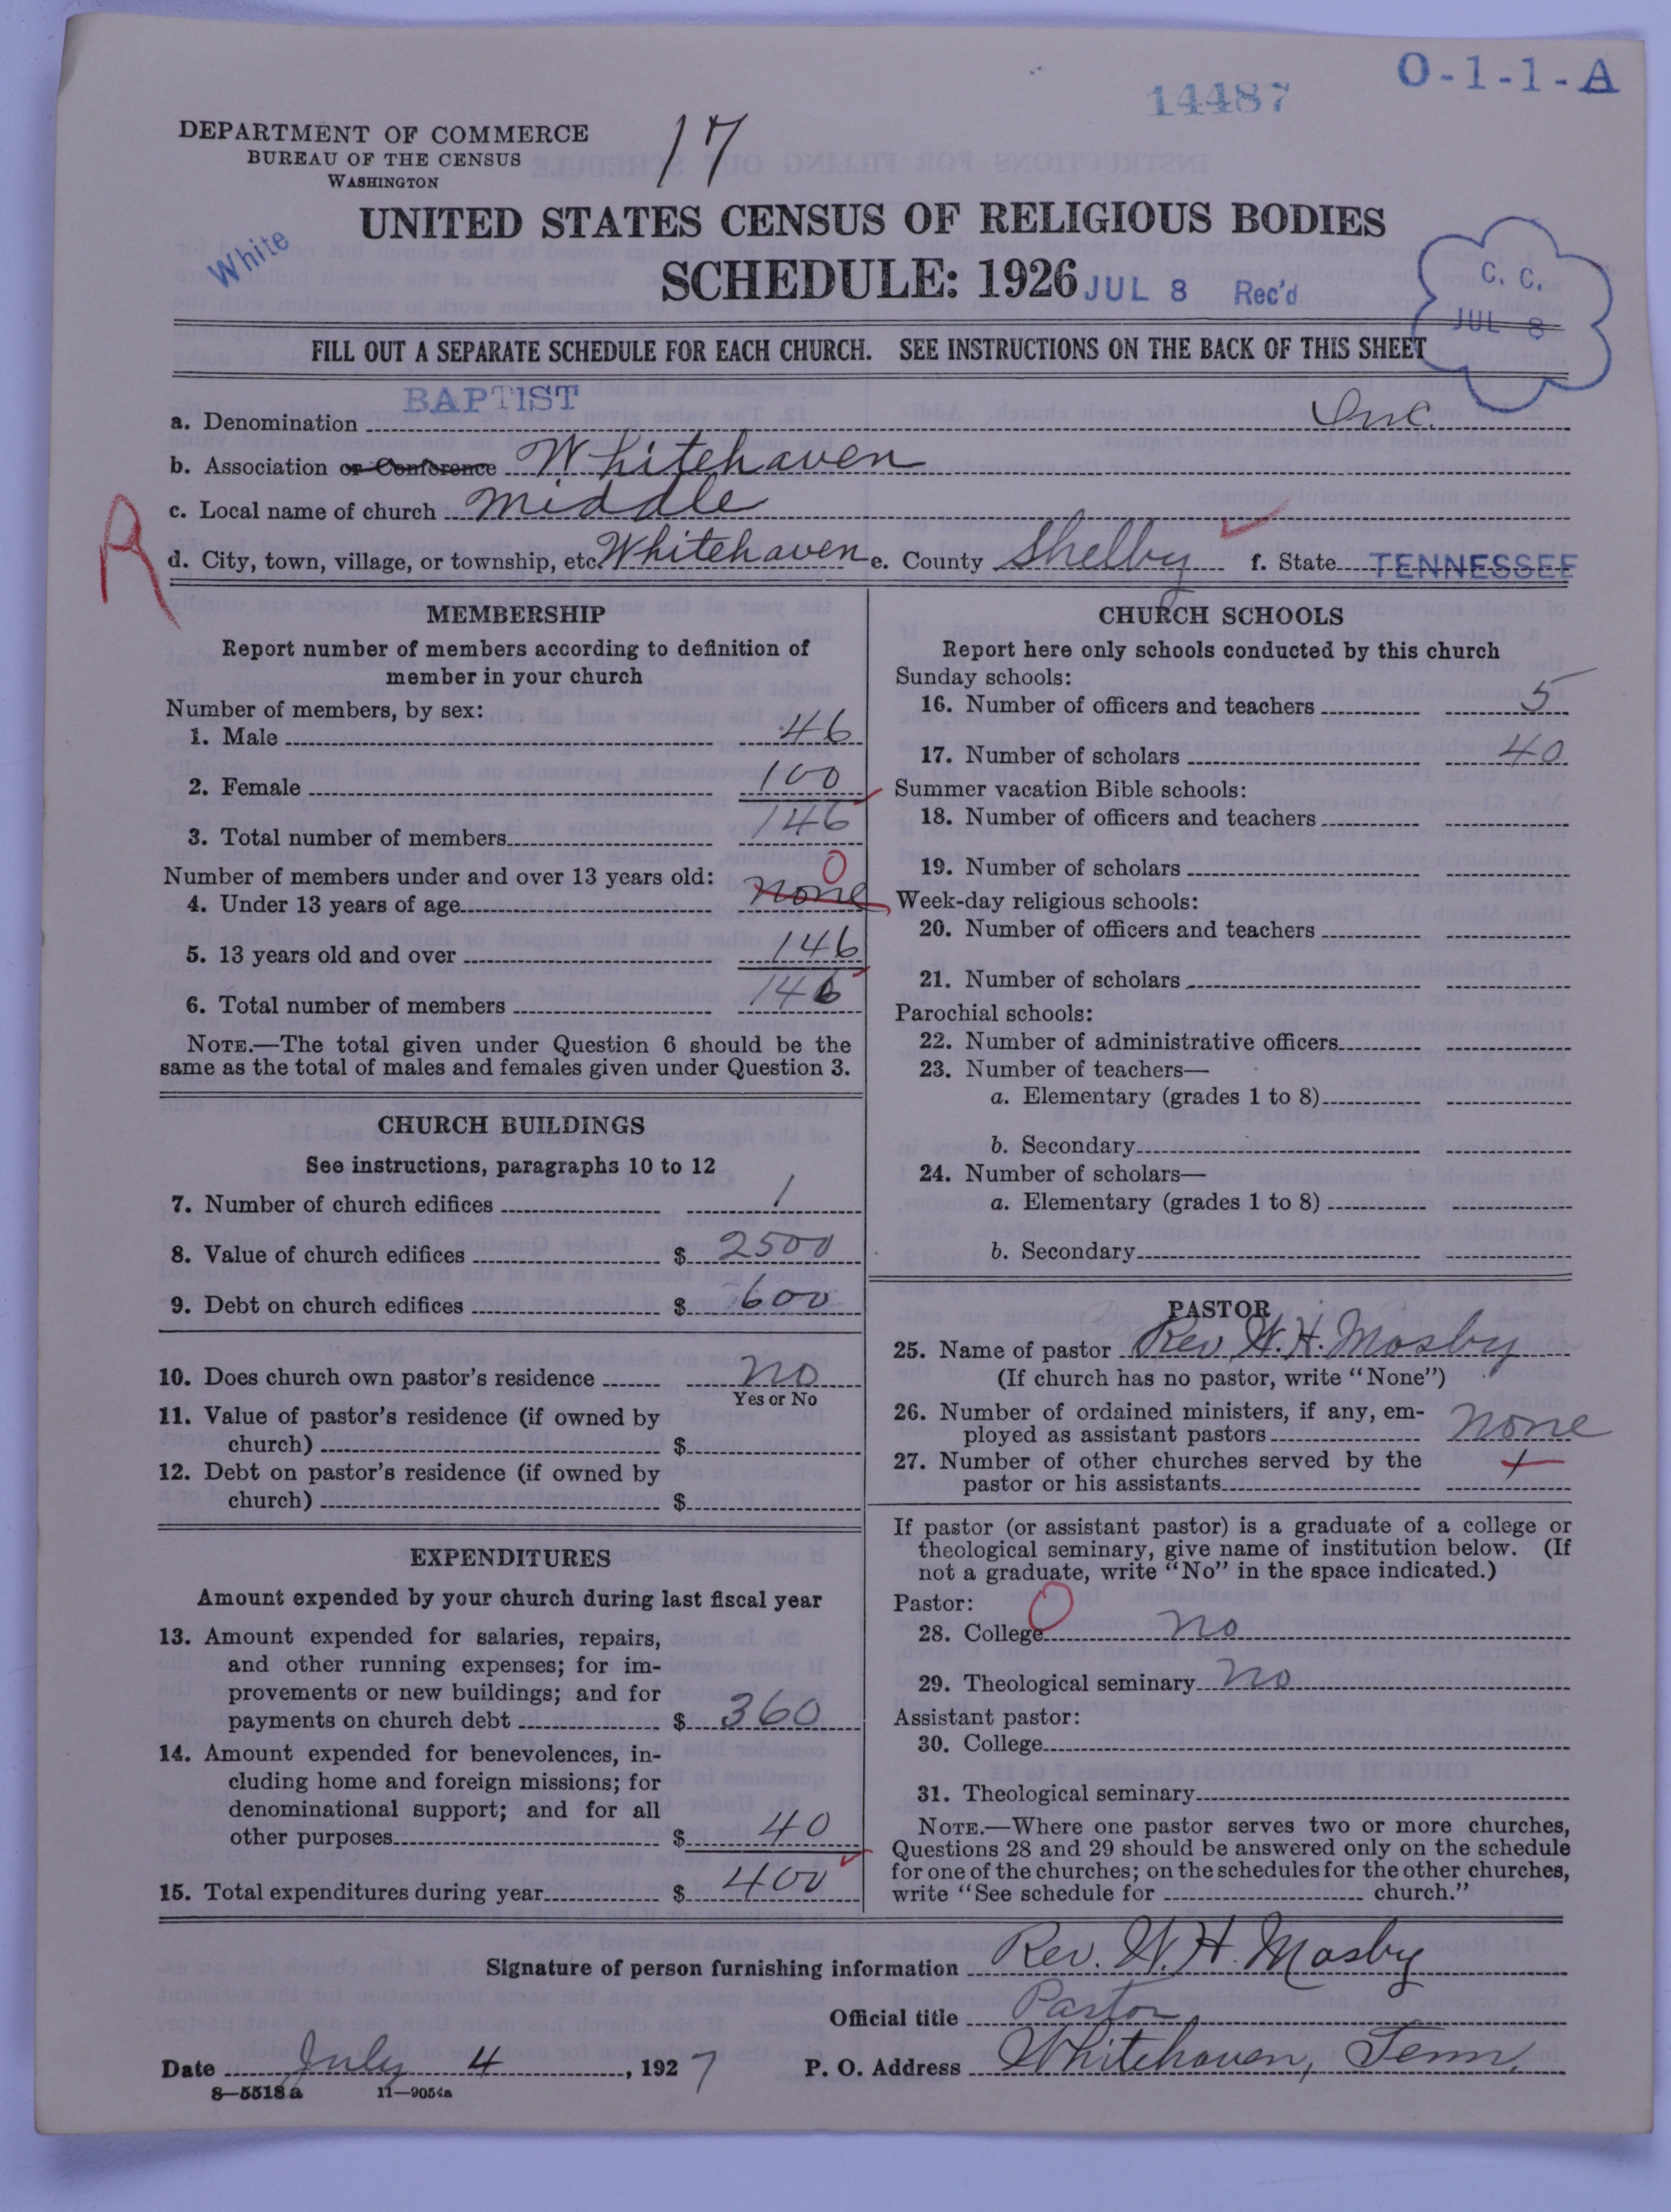 O-1-1-A
14487
DEPARTMENT OF COMMERCE
BUREAU OF THE CENSUS
WASHINGTON
17
UNITED STATES CENSUS OF RELIGIOUS BODIES
White
SCHEDULE: 1926 JUL 8 Rec'd
C. C.
JUL 8
FILL OUT A SEPARATE SCHEDULE FOR EACH CHURCH. SEE INSTRUCTIONS ON THE BACK OF THIS SHEET
a. Denomination BAPTIST Inc.
b. Association or Conference Whitehaven
c. Local name of church Middle
R
d. City, town, village, or township, etc. Whitehaven e. County Shelby f. State TENNESSEE
MEMBERSHIP
Report number of members according to definition of
member in your church
Number of members, by sex:
1. Male 46
2. Female 100
3. Total number of members 146
Number of members under and over 13 years old: 0
4. Under 13 years of age none
5. 13 years old and over 146
6. Total number of members 146
NOTE.—The total given under Question 6 should be the
same as the total of males and females given under Question 3.
CHURCH BUILDINGS
See instructions, paragraphs 10 to 12
7. Number of church edifices 1
8. Value of church edifices $ 2500
9. Debt on church edifices $ 600
10. Does church own pastor's residence no
Yes or No
11. Value of pastor's residence (if owned by
church) $
12. Debt on pastor's residence (if owned by
church) $
EXPENDITURES
Amount expended by your church during last fiscal year
13. Amount expended for salaries, repairs,
and other running expenses; for im-
provements or new buildings; and for
payments on church debt $ 360
14. Amount expended for benevolences, in-
cluding home and foreign missions; for
denominational support; and for all
other purposes $ 40
15. Total expenditures during year $ 400
CHURCH SCHOOLS
Report here only schools conducted by this church
Sunday schools:
16. Number of officers and teachers 5
17. Number of scholars 40
Summer vacation Bible schools:
18. Number of officers and teachers
19. Number of scholars
Week-day religious schools:
20. Number of officers and teachers
21. Number of scholars
Parochial schools:
22. Number of administrative officers
23. Number of teachers—
a. Elementary (grades 1 to 8)
b. Secondary
24. Number of scholars—
a. Elementary (grades 1 to 8)
b. Secondary
PASTOR
25. Name of pastor Rev. W. H. Mosby
(If church has no pastor, write "None")
26. Number of ordained ministers, if any, em-
ployed as assistant pastors none
27. Number of other churches served by the
pastor or his assistants
If pastor (or assistant pastor) is a graduate of a college or
theological seminary, give name of institution below. (If
not a graduate, write "No" in the space indicated.)
Pastor: O
28. College no
29. Theological seminary no
Assistant pastor:
30. College
31. Theological seminary
NOTE.—Where one pastor serves two or more churches,
Questions 28 and 29 should be answered only on the schedule
for one of the churches; on the schedules for the other churches,
write "See schedule for church."
Signature of person furnishing information Rev. W. H. Mosby
Official title Pastor
Date July 4, 1927 P. O. Address Whitehaven, Tenn.
8—5518 a 11—9054a